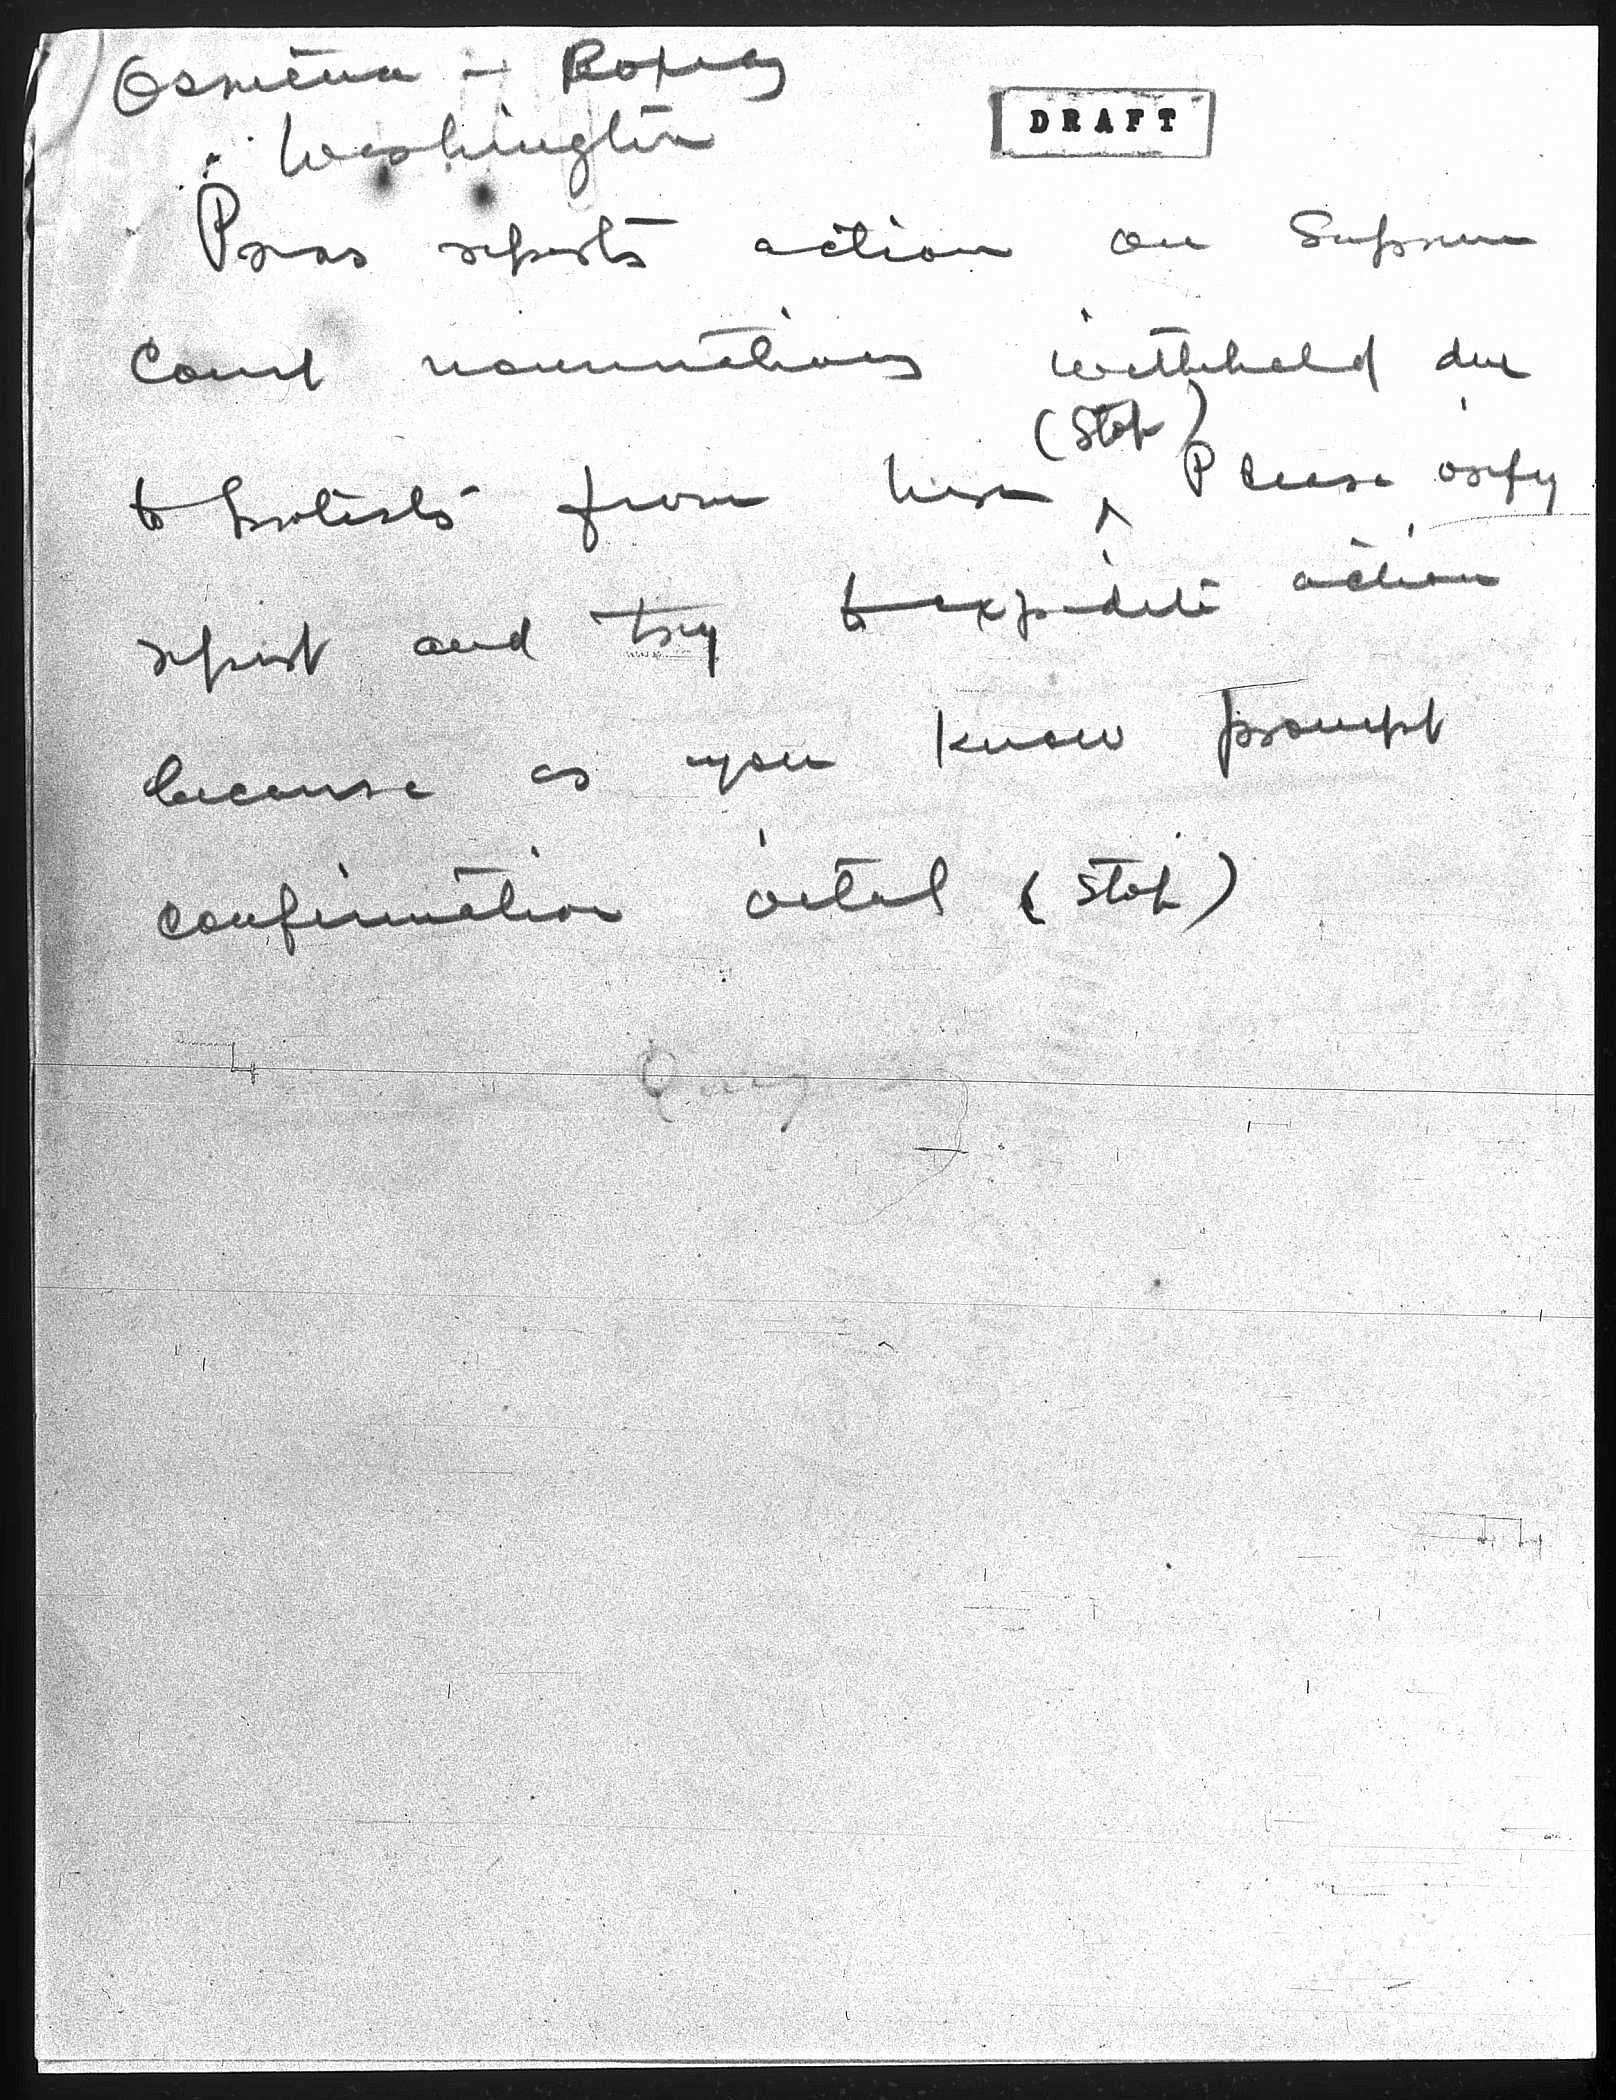 Osmeña - Roxas
Washington
DRAFT
Press reports action on Supreme
Court nominations withheld due
(Stop)
to protests from here ^ Please verify
report and try to expedite action
because as you know prompt
confirmation vital (Stop)